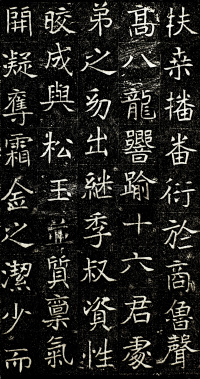 扶桒播畨衍於商魯聲
髙八龍譽踰十六君䖏
弟之㓜出継季叔資性
晈成與松玉並質稟氣
開凝奪霜金之潔少而